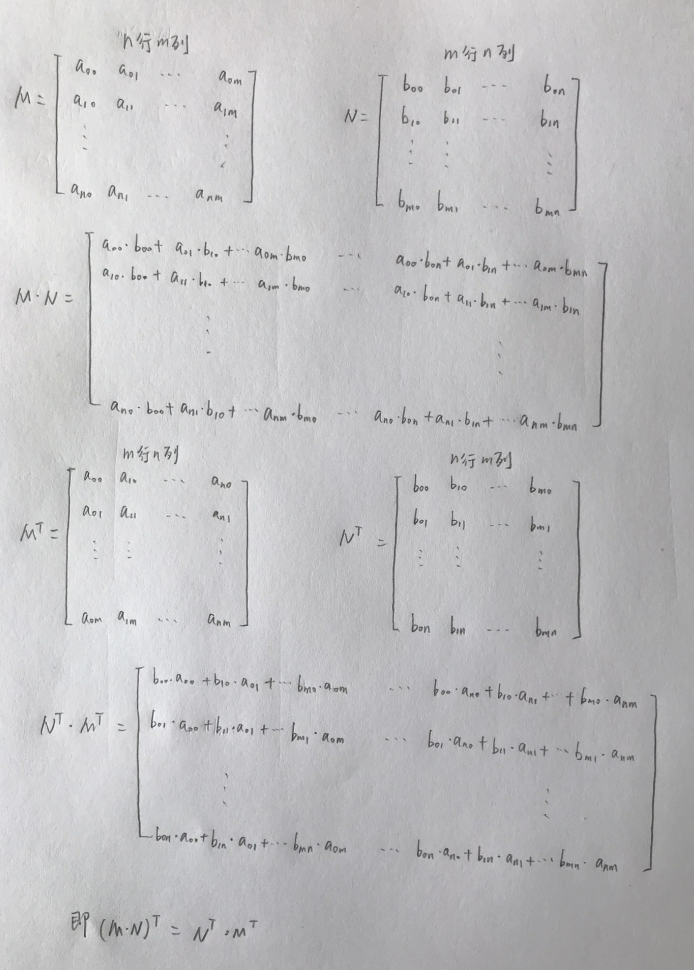 n行m列
M = [ a₀₀ a₀₁ ⋯ a₀ₘ
a₁₀ a₁₁ ⋯ a₁ₘ
⋮ ⋮
aₙ₀ aₙ₁ ⋯ aₙₘ ]
m行n列
N = [ b₀₀ b₀₁ ⋯ b₀ₙ
b₁₀ b₁₁ ⋯ b₁ₙ
⋮ ⋮ ⋮
bₘ₀ bₘ₁ ⋯ bₘₙ ]
M·N = [ a₀₀·b₀₀ + a₀₁·b₁₀ + ⋯ a₀ₘ·bₘ₀ ⋯ a₀₀·b₀ₙ + a₀₁·b₁ₙ + ⋯ a₀ₘ·bₘₙ
a₁₀·b₀₀ + a₁₁·b₁₀ + ⋯ a₁ₘ·bₘ₀ ⋯ a₁₀·b₀ₙ + a₁₁·b₁ₙ + ⋯ a₁ₘ·b₁ₙ
⋮ ⋮
aₙ₀·b₀₀ + aₙ₁·b₁₀ + ⋯ aₙₘ·bₘ₀ ⋯ aₙ₀·b₀ₙ + aₙ₁·b₁ₙ + ⋯ aₙₘ·bₘₙ ]
m行n列
Mᵀ = [ a₀₀ a₁₀ ⋯ aₙ₀
a₀₁ a₁₁ ⋯ aₙ₁
⋮ ⋮ ⋮
a₀ₘ a₁ₘ ⋯ aₙₘ ]
n行m列
Nᵀ = [ b₀₀ b₁₀ ⋯ bₘ₀
b₀₁ b₁₁ ⋯ bₘ₁
⋮ ⋮ ⋮
b₀ₙ b₁ₙ ⋯ bₘₙ ]
Nᵀ·Mᵀ = [ b₀₀·a₀₀ + b₁₀·a₀₁ + ⋯ bₘ₀·a₀ₘ ⋯ b₀₀·aₙ₀ + b₁₀·aₙ₁ + ⋯ + bₘ₀·aₙₘ
b₀₁·a₀₀ + b₁₁·a₀₁ + ⋯ bₘ₁·a₀ₘ ⋯ b₀₁·aₙ₀ + b₁₁·aₙ₁ + ⋯ bₘ₁·aₙₘ
⋮ ⋮
b₀ₙ·a₀₀ + b₁ₙ·a₀₁ + ⋯ bₘₙ·a₀ₘ ⋯ b₀ₙ·aₙ₀ + b₁ₙ·aₙ₁ + ⋯ bₘₙ·aₙₘ ]
即 (M·N)ᵀ = Nᵀ·Mᵀ